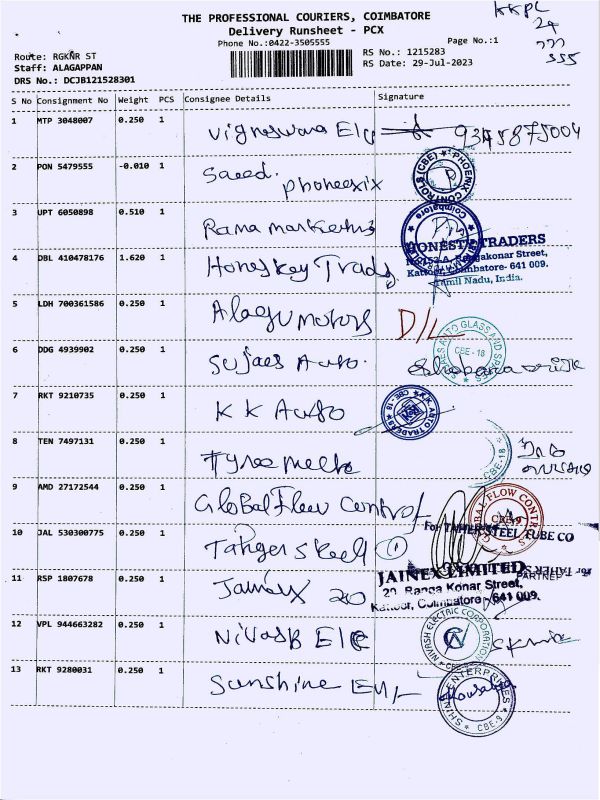 THE PROFESSIONAL COURIERS, COIMBATORE
Delivery Runsheet - PCX
Phone No.:0422-3505555
KKPL
Page No.:1
Route: RGKNR ST
Staff: ALAGAPPAN
DRS No.: DCJB121528301
RS No.: 1215283
RS Date: 29-Jul-2023
S No Consignment No Weight PCS Consignee Details Signature
1 MTP 3048007 0.250 1 Vigneswara Ele
2 PON 5479555 -0.010 1 Saeed. phoneexix
PHOENIX CONTROLS (CBE)
3 UPT 6050898 0.510 1 Rama marketing
Coimbatore
4 DBL 410478176 1.620 1 Honeskey Trads
HONESTY TRADERS
Rangakonar Street,
Kattoor, Coimbatore- 641 009.
Tamil Nadu, India.
5 LDH 700361586 0.250 1 Alagu motors D/L
6 DDG 4939902 0.250 1 Sujaes Auto.
AUTO GLASS AND
CBE - 18
7 RKT 9210735 0.250 1 KK Auto
K.K. AUTO TRADERS CBE - 18
8 TEN 7497131 0.250 1
CBE-18
9 AMD 27172544 0.250 1 Global Flow Control
GLOBAL FLOW CONTROL
10 JAL 530300775 0.250 1 Taher Steel 1
For TAHER STEEL TUBE CO
PARTNER
11 RSP 1807678 0.250 1 Jainex 20
JAINEX LIMITED
20, Ranga Konar Street,
Kattoor, Coimbatore - 641 009.
12 VPL 944663282 0.250 1 Nivash Ele
NIVASH ELECTRIC CORPORATION
13 RKT 9280031 0.250 1 Sunshine Ent
ENTERPRISES
CBE-9